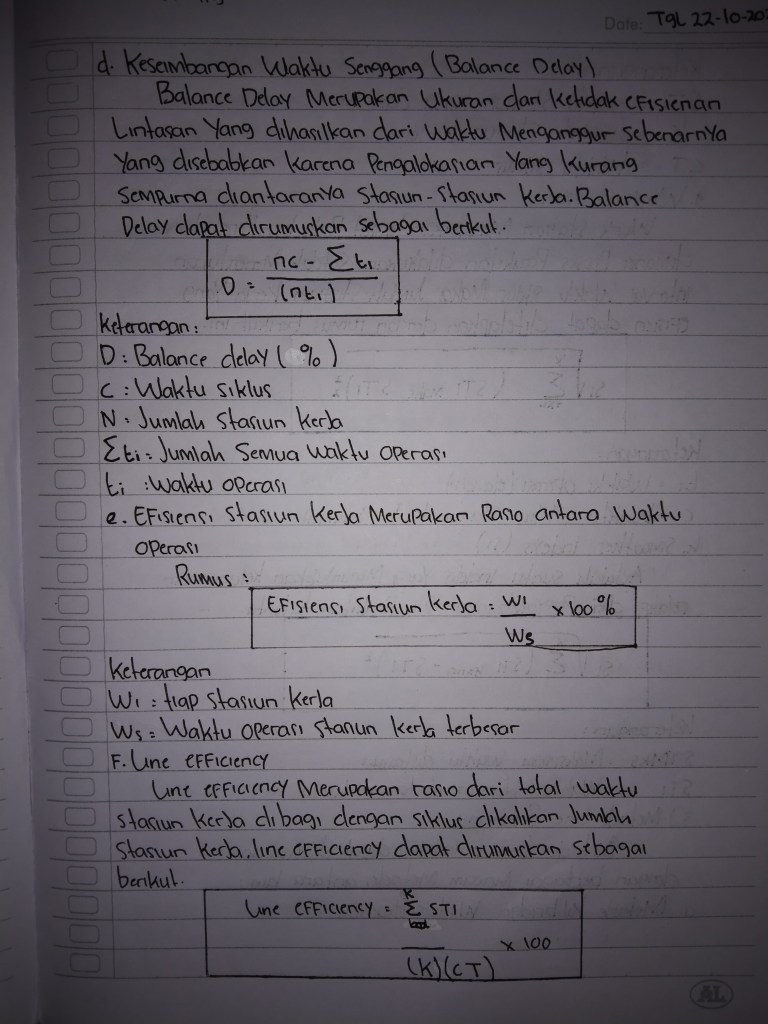 Date: TgL 22-10-202
d. Keseimbangan Waktu Senggang (Balance Delay)
Balance Delay Merupakan Ukuran dari Ketidak efisienan
Lintasan Yang dihasilkan dari Waktu Menganggur sebenarnya
Yang disebabkan karena Pengalokasian Yang kurang
Sempurna diantaranya Stasiun-Stasiun kerja. Balance
Delay dapat dirumuskan sebagai berikut.
D = nc - Σti
(nti)
Keterangan:
D : Balance delay ( % )
C : Waktu siklus
N : Jumlah Stasiun kerja
Σti = Jumlah Semua Waktu operasi
ti : Waktu operasi
e. Efisiensi Stasiun kerja Merupakan Rasio antara Waktu
operasi
Rumus :
Efisiensi Stasiun kerja : Wi x 100 %
Ws
Keterangan
Wi : tiap Stasiun kerja
Ws = Waktu operasi Stasiun kerja terbesar
F. Line efficiency
Line efficiency Merupakan rasio dari total waktu
Stasiun kerja dibagi dengan siklus dikalikan Jumlah
Stasiun kerja. line efficiency dapat dirumuskan sebagai
berikut.
K
Line efficiency = Σ STi
x 100
(K)(CT)
AL